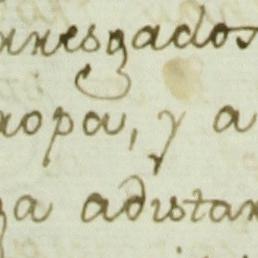 rresgados
ropa, y a
za adistan